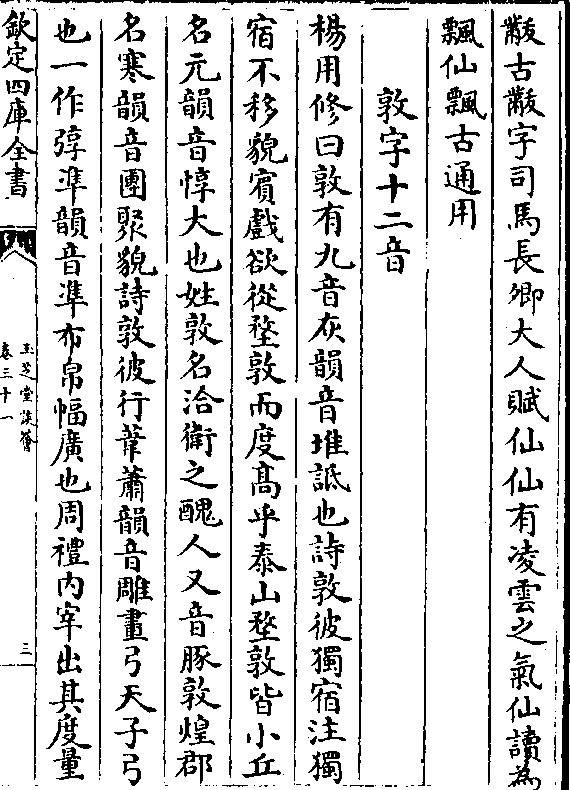 黻古黻字司馬長卿大人賦仙仙有凌雲之氣仙讀為
飄仙飄古通用
敦字十二音
楊用修曰敦有九音灰韻音堆詆也詩敦彼獨宿注獨
宿不移貌賓戲欲從堥敦而度高乎泰山堥敦皆小丘
名元韻音惇大也姓敦名洽衛之醜人又音豚敦煌郡
名寒韻音團聚貌詩敦彼行葦蕭韻音雕畫弓天子弓
也一作弴準韻音準布帛幅廣也周禮内宰出其度量
欽定四庫全書
玉芝堂談薈
卷三十一
三